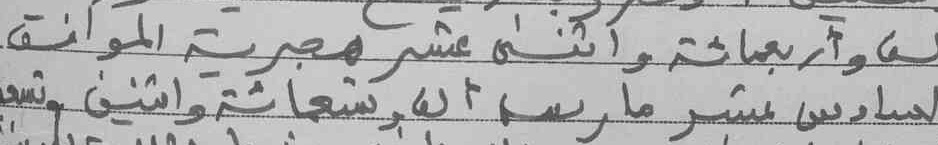 ألف وأربعمائة واثنى عشر هجرية الموافق
لسادس عشر مارس ألف وتسعمائة واثنين وتسعين